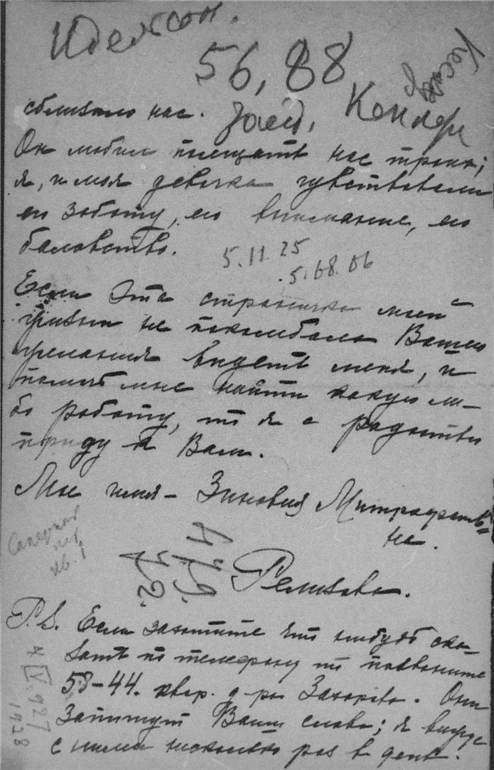 Идельсон.
56,88
сближало нас.
Он любил посещать нас троих;
я, и моя девочка чувствовали
его заботу, его внимание, его
баловство.
5.11.25
5.68.06
Если эта страничка моей
жизни не поколебала Вашего
желания видеть меня, и
помочь мне найти какую ли-
бо работу, то я с радостью
приду к Вам.
Мое имя – Зиновия Митрофанов-
на.
Саперный
пер.
кв. 1
P.S. Если захотите что нибудь ска-
зать по телефону то позвоните
58–44. квар. д-ра Захарова. Они
запишут Ваши слова; я вижусь
с ними несколько раз в день.
4 IV 927
1928